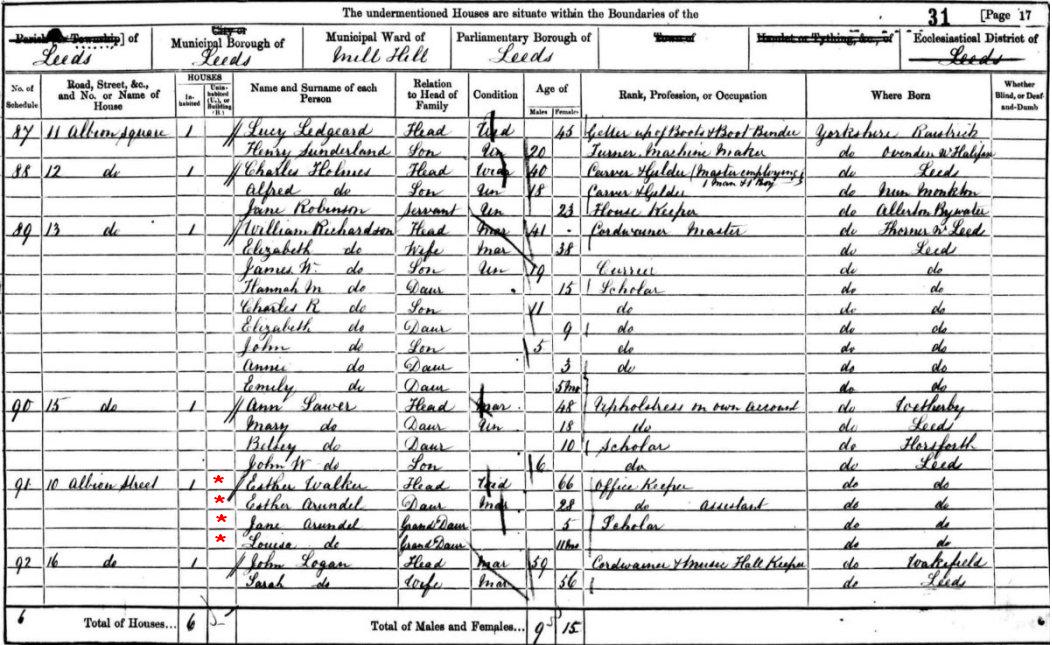 The undermentioned Houses are situate within the Boundaries of the 31 [Page 17
Parish or Township] of Leeds City or Municipal Borough of Leeds Municipal Ward of Mill Hill Parliamentary Borough of Leeds Town of Hamlet or Tything, &c., of Ecclesiastical District of Leeds
No. of Schedule Road, Street, &c., and No. or Name of House HOUSES Inhabited Uninhabited (U.), or Building (B.) Name and Surname of each Person Relation to Head of Family Condition Age of Males Females Rank, Profession, or Occupation Where Born Whether Blind, or Deaf-and-Dumb
87 11 Albion Square 1 Lucy Ledgeard Head Wid 45 Getter up of Boots & Boot Binder Yorkshire Rastrick
Henry Sunderland Son Un 20 Turner. Machine Maker do Ovenden Nr Halifax
88 12 do 1 Charles Holmes Head Widr 40 Carver & Gilder (Master employing 1 Man & 1 Boy) do Leeds
Alfred do Son Un 18 Carver & Gilder do Nun Monkton
Jane Robinson Servant Un 23 House Keeper do Allerton Bywater
89 13 do 1 William Richardson Head Mar 41 Cordwainer Master do Thorner Nr Leeds
Elizabeth do Wife Mar 38 do Leeds
James W. do Son Un 19 Currier do do
Hannah M do Daur 15 Scholar do do
Charles R do Son 11 do do do
Elizabeth do Daur 9 do do do
John do Son 5 do do do
Annie do Daur 3 do do do
Emily do Daur 5 Mo do do
90 15 do 1 Ann Sawer Head Mar 48 Upholstress on own account do Wetherby
Mary do Daur Un 18 do do Leeds
Betsey do Daur 10 Scholar do Horsforth
John W do Son 6 do do Leeds
91 10 Albion Street 1 * Esther Walker Head Wid 66 Office Keeper do do
* Esther Arundel Daur Mar 28 do assistant do do
* Jane Arundel Grand Daur 5 Scholar do do
* Louisa do Grand Daur 11 Mo do do
92 16 do 1 John Logan Head Mar 59 Cordwainer & Music Hall Keeper do Wakefield
Sarah do Wife Mar 56 do Leeds
6 Total of Houses... 6 Total of Males and Females... 9 15 6